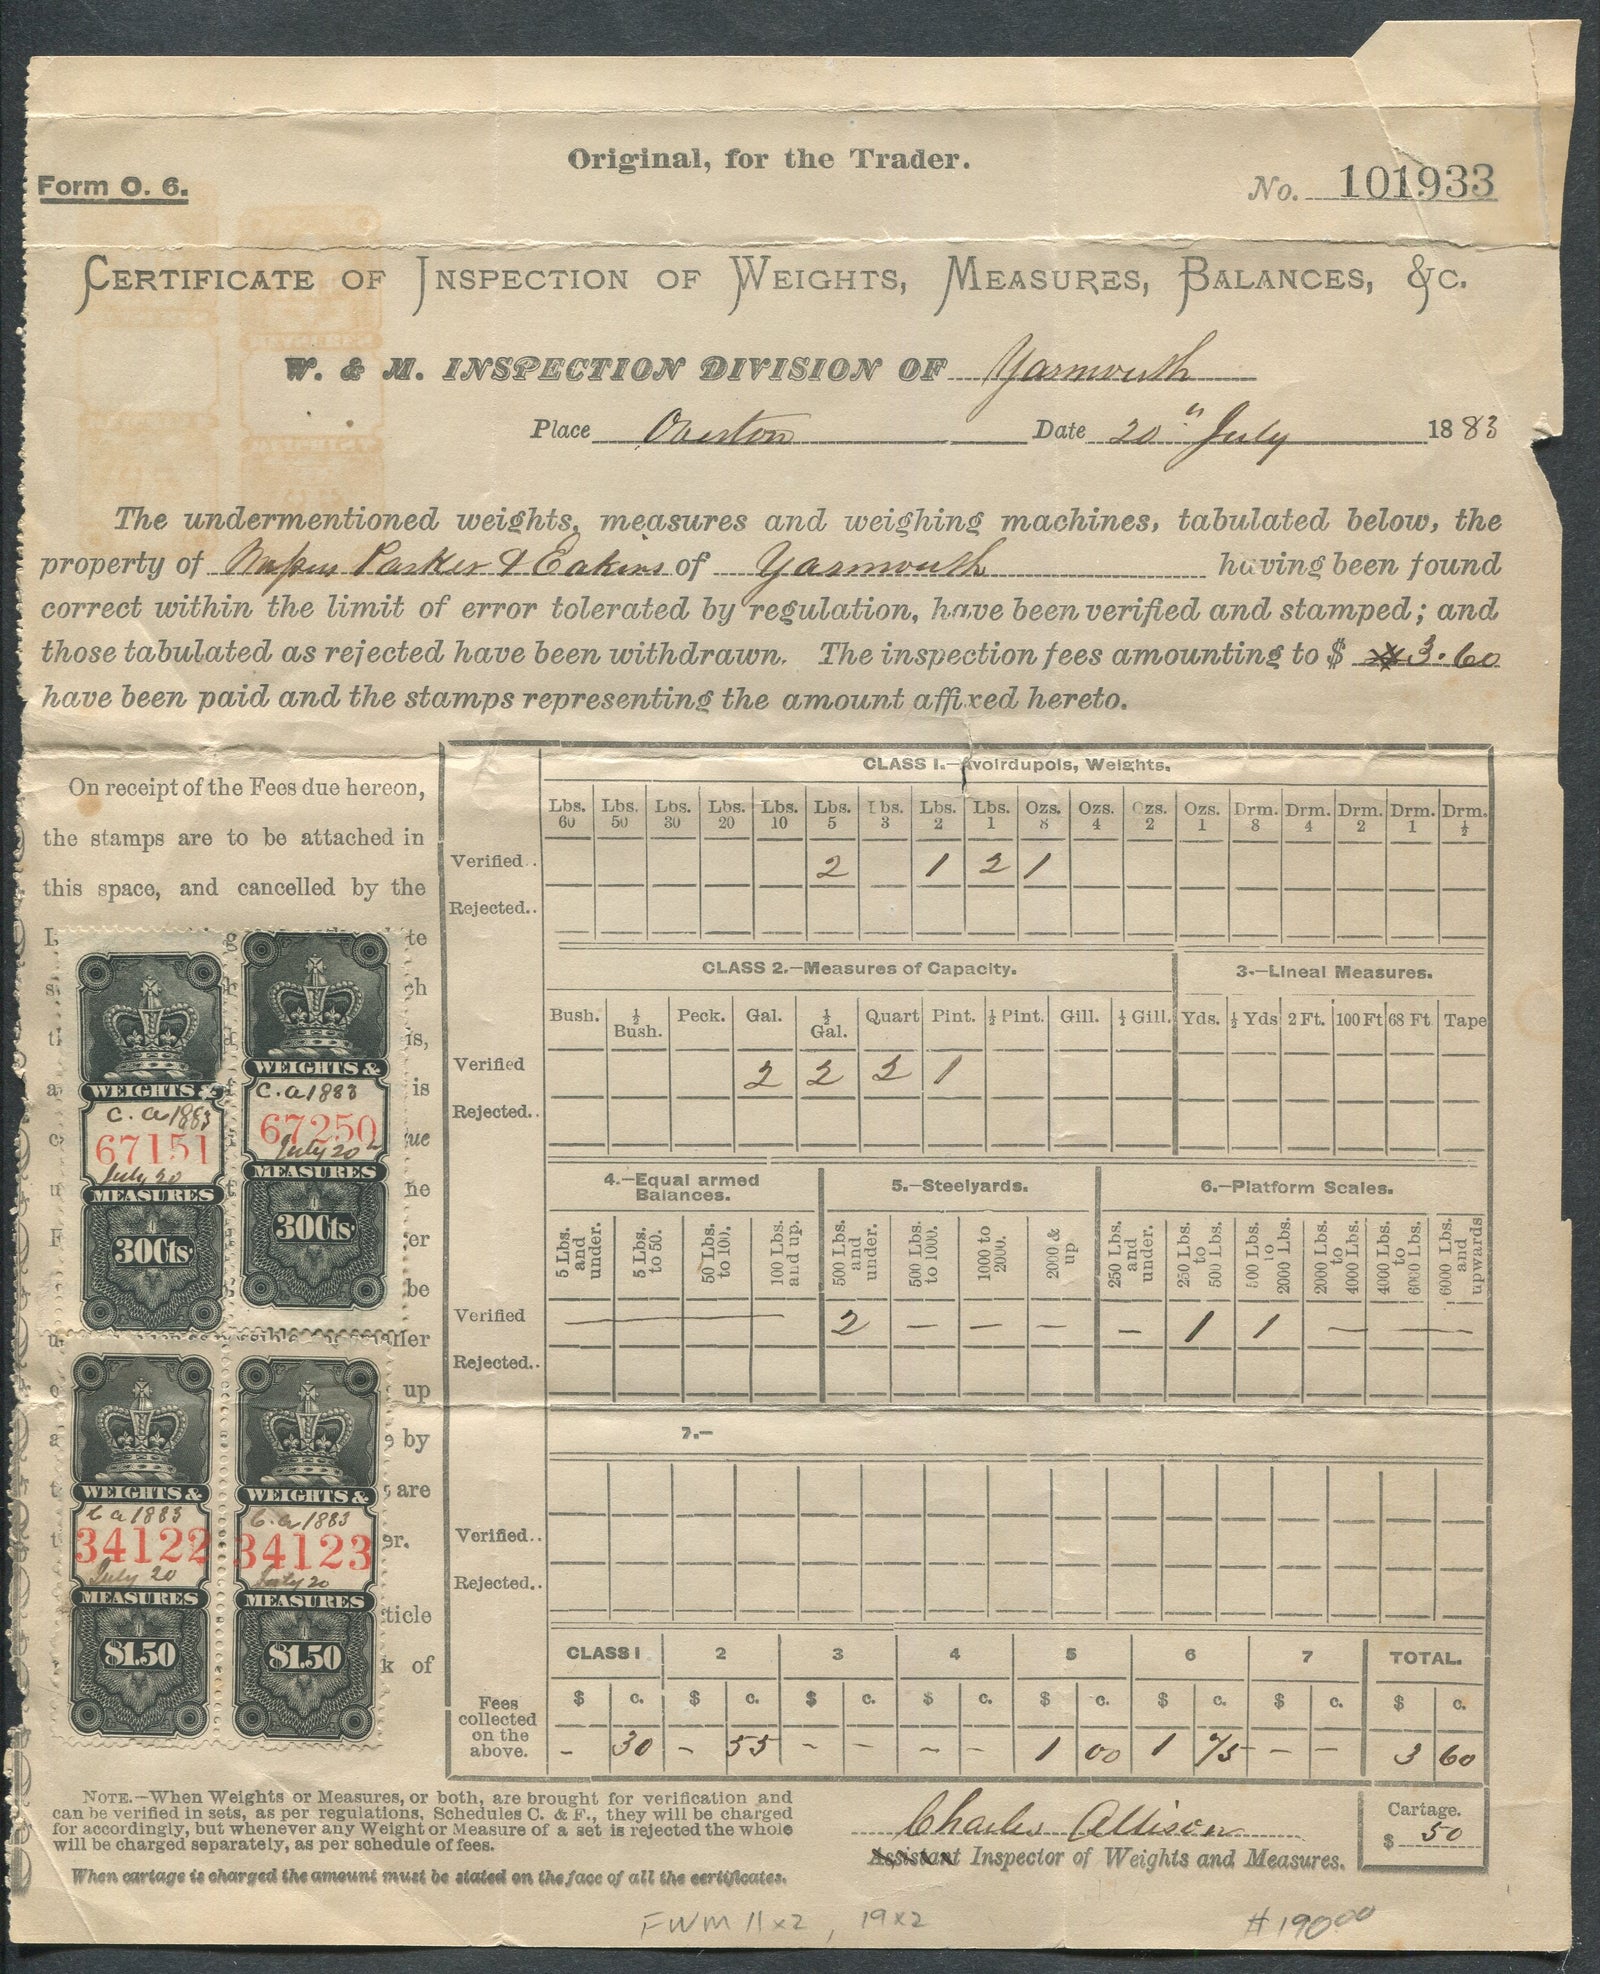 Original, for the Trader.
Form O. 6.
No. 101933
CERTIFICATE OF INSPECTION OF WEIGHTS, MEASURES, BALANCES, &C.
W. & M. INSPECTION DIVISION OF Yarmouth
Place Overton Date 20" July 1883
The undermentioned weights, measures and weighing machines, tabulated below, the
property of Messrs Parker & Eakins of Yarmouth having been found
correct within the limit of error tolerated by regulation, have been verified and stamped; and
those tabulated as rejected have been withdrawn. The inspection fees amounting to $ 3.60
have been paid and the stamps representing the amount affixed hereto.
On receipt of the Fees due hereon,
the stamps are to be attached in
this space, and cancelled by the
te
ch
is,
is
ue
he
er
be
up
by
are
er.
ticle
k of
WEIGHTS &
C. A 1883
67151
July 20
MEASURES
30Cts.
WEIGHTS &
C. A 1883
67250
July 20
MEASURES
30Cts.
WEIGHTS &
C A 1883
34122
July 20
MEASURES
$1.50
WEIGHTS &
C. A 1883
34123
July 20
MEASURES
$1.50
CLASS 1.—Avoirdupois, Weights.
Lbs. 60 Lbs. 50 Lbs. 30 Lbs. 20 Lbs. 10 Lbs. 5 Lbs. 3 Lbs. 2 Lbs. 1 Ozs. 8 Ozs. 4 Ozs. 2 Ozs. 1 Drm. 8 Drm. 4 Drm. 2 Drm. 1 Drm. ½
Verified.. 2 1 2 1
Rejected..
CLASS 2.—Measures of Capacity. 3.—Lineal Measures.
Bush. ½ Bush. Peck. Gal. ½ Gal. Quart Pint. ½ Pint. Gill. ½ Gill. Yds. ½ Yds 2 Ft. 100 Ft 68 Ft Tape
Verified 2 2 2 1
Rejected..
4.—Equal armed Balances. 5.—Steelyards. 6.—Platform Scales.
5 Lbs. and under. 5 Lbs. to 50. 50 Lbs. to 100. 100 Lbs. and up. 500 Lbs. and under. 500 Lbs. to 1000. 1000 to 2000. 2000 & up 250 Lbs. and under. 250 Lbs. to 500 Lbs. 500 Lbs. to 2000 Lbs. 2000 Lbs. to 4000 Lbs. 4000 Lbs. to 6000 Lbs. 6000 Lbs. and upwards
Verified — 2 — — — — 1 1 — —
Rejected..
7.—
Verified..
Rejected..
CLASS 1 2 3 4 5 6 7 TOTAL.
$ c. $ c. $ c. $ c. $ c. $ c. $ c. $ c.
Fees collected on the above. - 30 - 55 - - - - 1 00 1 75 - - 3 60
NOTE.—When Weights or Measures, or both, are brought for verification and
can be verified in sets, as per regulations, Schedules C. & F., they will be charged
for accordingly, but whenever any Weight or Measure of a set is rejected the whole
will be charged separately, as per schedule of fees.
When cartage is charged the amount must be stated on the face of all the certificates.
Charles Allison
Assistant Inspector of Weights and Measures.
Cartage.
$ 50
FWM 11x2, 19x2
# 190.00